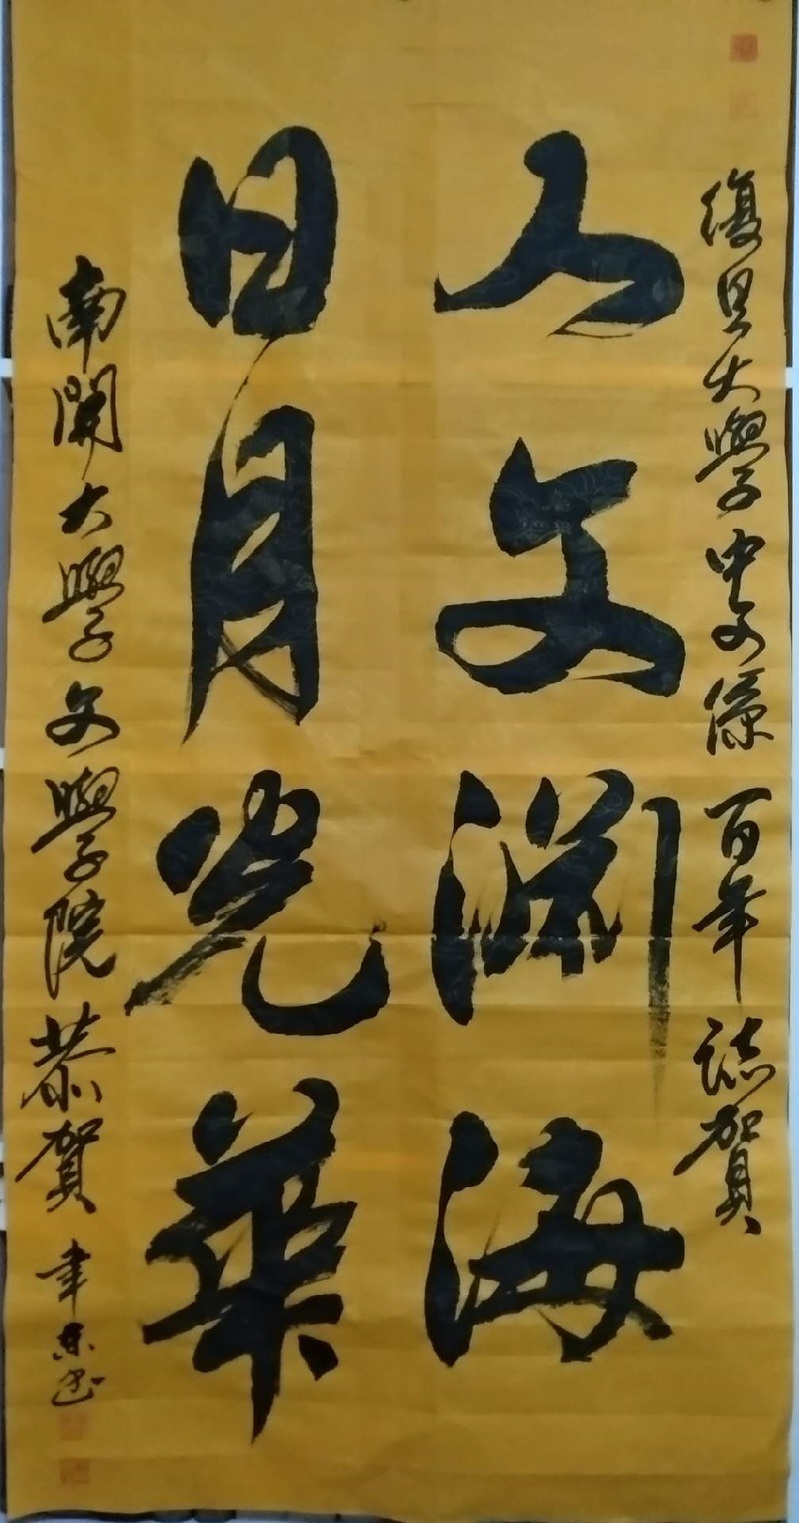 復旦大學中文係百年誌賀
人文渊海
日月光華
南開大學文學院恭賀